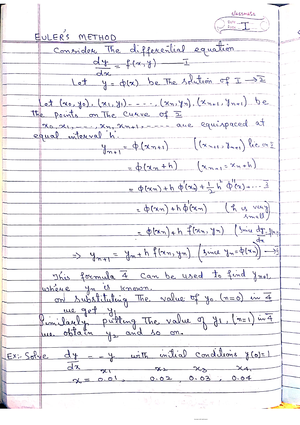 classmate
I
EULER'S METHOD
Consider The differential equation
dy/dx = f(x,y) — I
Let y = φ(x) be The solution of I → II
Let (x0,y0), (x1,y1) - - - - -, (xn,yn), (xn+1, yn+1) be
the points on The curve of II
x0, x1, ---, xn, xn+1, ---- are equispaced at
equal interval h.
yn+1 = φ(xn+1) ((xn+1, yn+1) lie on II
= φ(xn+h) (xn+1 = xn+h)
= φ(xn) + h φ'(xn) + 1/2 h² φ''(x) + ...
= φ(xn) + h φ'(xn) (h is very small)
= φ(xn) + h f(xn, yn) (since dy/dx =
⇒ yn+1 = yn + h f(xn, yn) (since yn = φ(xn)) →
This formula 4 Can be used to find yn+1
where yn is known.
on substituting The value of y0 (n=0) in 4
we get y1
Similarly putting The value of y1, (n=1) in 4
we obtain y2 and so on.
Ex:- Solve dy/dx = - y with initial conditions y(0)=1
x1 x2 x3 x4
x = 0.01, 0.02, 0.03, 0.04